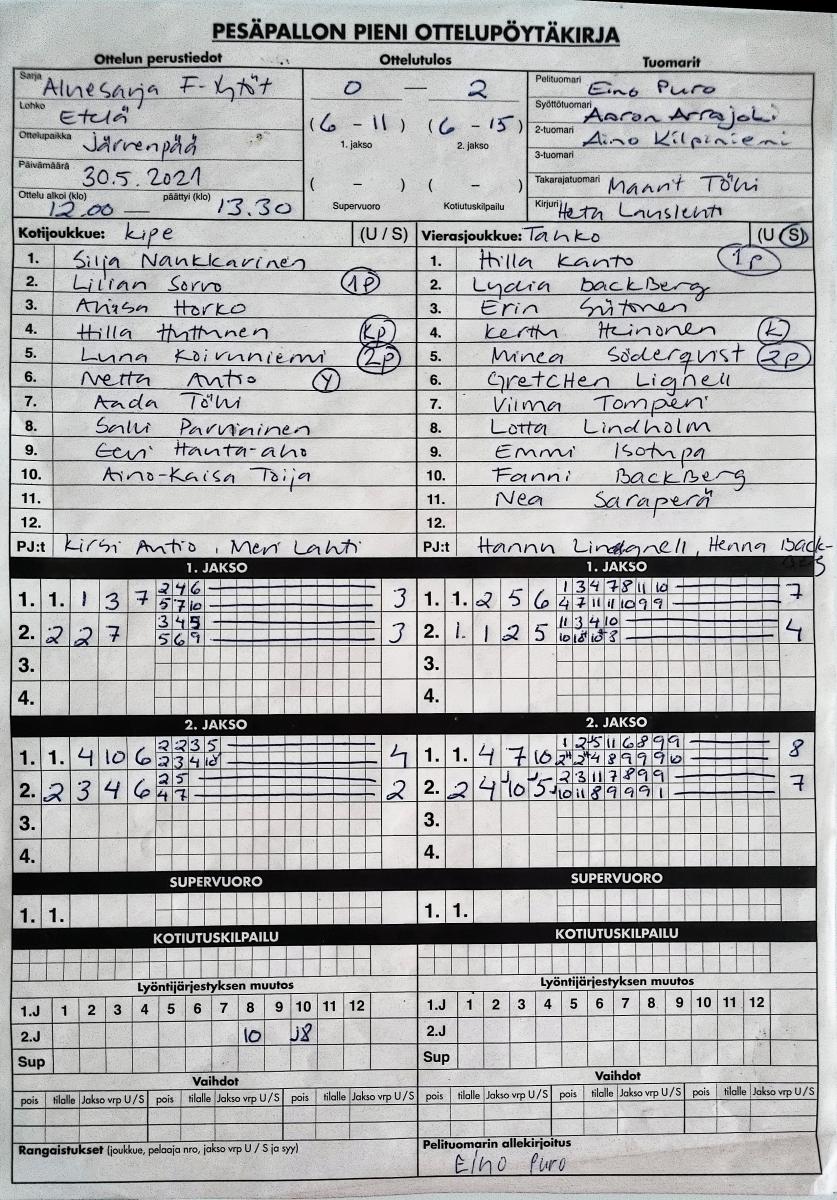 PESÄPALLON PIENI OTTELUPÖYTÄKIRJA
Ottelun perustiedot Ottelutulos Tuomarit
Sarja Aluesarja F-tytöt 0 — 2 Pelituomari Eino Puro
Lohko Etelä Syöttötuomari Aaron Arrajoki
Ottelupaikka Järvenpää (6 - 11) (6 - 15) 2-tuomari Aino Kilpiniemi
1. jakso 2. jakso 3-tuomari
Päivämäärä 30.5.2021 ( - ) ( - ) Takarajatuomari Maarit Töhi
Ottelu alkoi (klo) 12.00 — päättyi (klo) 13.30 Supervuoro Kotiutuskilpailu Kirjuri Heta
Kotijoukkue: Kipe (U / S) Vierasjoukkue: Tahko (U / S)
1. Silja Nankkarinen 1. Hilla Kanto 1P
2. Lilian Sorvo 1P 2. Lydia BackBerg
3. Horko 3. Erin Siitonen
4. Hilla Huttunen KP 4. Kerttu Heinonen K
5. Luna Koivuniemi 2P 5. Minea Söderqvist 2P
6. Netta Antio Y 6. GretcHen Lignell
7. Aada Töhi 7. Vilma Tomperi
8. Salli Parviainen 8. Lotta Lindholm
9. Eevi Hauta-aho 9. Emmi Isotupa
10. Aino-Kaisa Toija 10. Fanni BackBerg
11. 11. Nea Saraperä
12. 12.
PJ:t Kirsi Antio, Meri Lahti PJ:t Hannu Henna Back-
1. JAKSO 1. JAKSO
1. 1. 1 3 7 2 4 6 3 1. 1. 2 5 6 1 3 4 7 8 11 10 7
5 7 10 4 7 11 11 10 9 9
2. 2 2 7 3 4 5 3 2. 1. 1 2 5 11 3 4 10 4
5 6 9 10
3. 3.
4. 4.
2. JAKSO 2. JAKSO
1. 1. 4 10 6 2 2 3 5 4 1. 1. 4 7 10 1 2 5 11 6 8 9 9 8
2 3 4 10 2 2 4 8 9 9 9 10
2. 2 3 4 6 2 5 2 2. 2 4 10 5 2 3 11 7 8 9 9 7
4 7 10 11 8 9 9 9 1
3. 3.
4. 4.
SUPERVUORO SUPERVUORO
1. 1. 1. 1.
KOTIUTUSKILPAILU KOTIUTUSKILPAILU
Lyöntijärjestyksen muutos Lyöntijärjestyksen muutos
1.J 1 2 3 4 5 6 7 8 9 10 11 12 1.J 1 2 3 4 5 6 7 8 9 10 11 12
2.J 10 J8 2.J
Sup Sup
Vaihdot Vaihdot
pois tilalle Jakso vrp U / S pois tilalle Jakso vrp U / S pois tilalle Jakso vrp U / S pois tilalle Jakso vrp U / S pois tilalle Jakso vrp U / S pois tilalle Jakso vrp U / S
Rangaistukset (joukkue, pelaaja nro, jakso vrp U / S ja syy) Pelituomarin allekirjoitus
Eino Puro